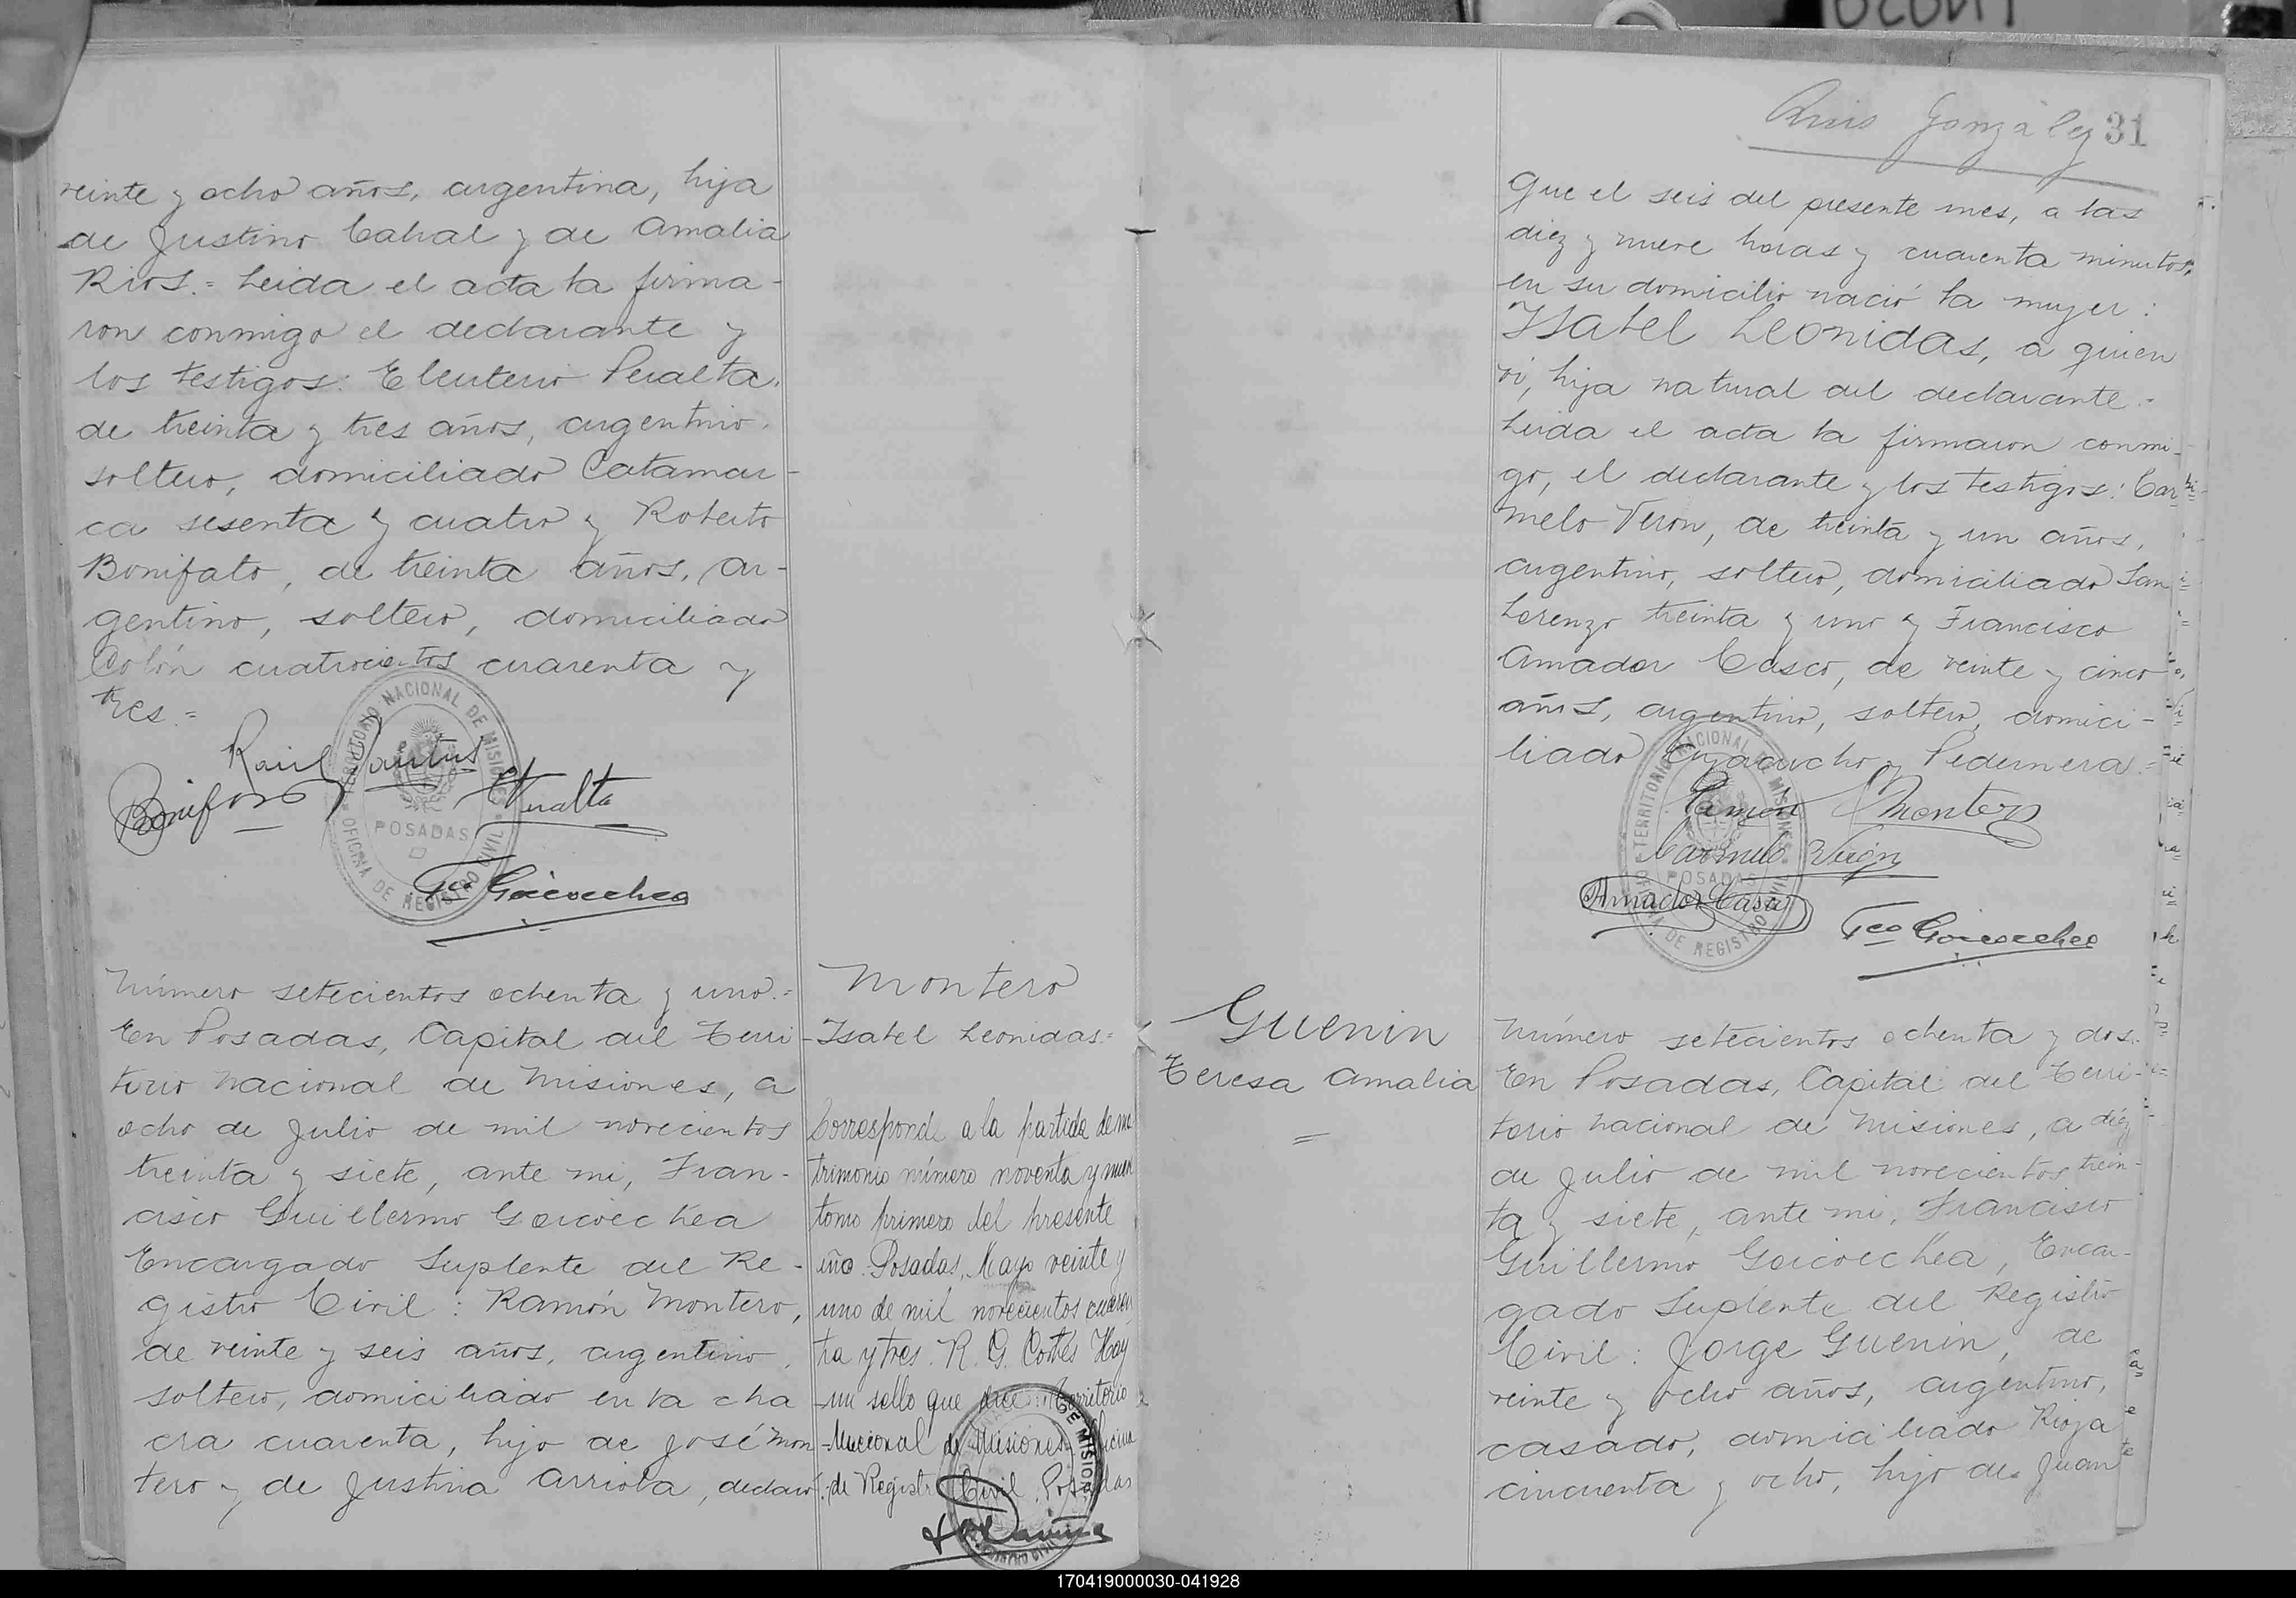 veinte y ocho años, argentina, hija
de Justino Cabral y de Amalia
Rios.= Leida el acta la firma-
ron conmigo el declarante y
los testigos: Eleuterio Peralta,
de treinta y tres años, argentino,
soltero, domiciliado Catamar-
ca sesenta y cuatro y Roberto
Bonifato, de treinta años, ar-
gentino, soltero, domiciliado
Colón cuatrocientos cuarenta y
tres.=
TERRITORIO NACIONAL DE MISIONES
OFICINA DE REGISTRO CIVIL
POSADAS
Raúl Santus
Bonifato
EPeralta
Fco Goicoechea
Número setecientos ochenta y uno.=
En Posadas, Capital del Terri-
torio Nacional de Misiones, a
ocho de Julio de mil novecientos
treinta y siete, ante mi, Fran-
cisco Guillermo Goicoechea
Encargado Suplente del Re-
gistro Civil: Ramón Montero,
de veinte y seis años, argentino,
soltero, domiciliado en la cha
cra cuarenta, hijo de José Mon
tero y de Justina Arriola, declaró:
Montero
Isabel Leonidas.=
Corresponde a la partida de ma
trimonio número noventa y nueve
tomo primero del presente
año. Posadas, Mayo veinte y
uno de mil novecientos cuaren
ta y tres. R. G. Cortés Hay
un sello que dice: Territorio
Nacional de Misiones Oficina
de Registro Civil. Posadas
DE MISIONES
Ruis González 31
Que el seis del presente mes, a las
diez y nueve horas y cuarenta minutos,
en su domicilio nació la mujer:
Isabel Leonidas, a quien
ví, hija natural del declarante.=
Leida el acta la firmaron conmi-
go, el declarante y los testigos: Car-
melo Veron, de treinta y un años,
argentino, soltero, domiciliado San
Lorenzo treinta y uno y Francisco
Amador Casco, de veinte y cinco
años, argentino, soltero, domici-
liado Ayacucho y Pedernera.=
TERRITORIO NACIONAL DE MISIONES
OFICINA DE REGISTRO CIVIL
POSADAS
Ramón Montero
Carmelo Verón
Amador Casco
Fco Goicoechea
Guenin
Teresa Amalia
=
Número setecientos ochenta y dos.
En Posadas, Capital del Terri-
torio Nacional de Misiones, a diéz
de Julio de mil novecientos trein-
ta y siete, ante mi, Francisco
Guillermo Goicoechea, Encar-
gado Suplente del Registro
Civil: Jorge Guenin, de
veinte y ocho años, argentino,
casado, domiciliado Rioja
cincuenta y ocho, hijo de Juan
170419000030-041928